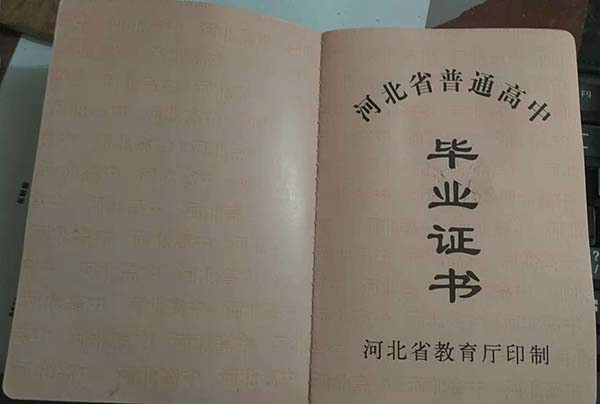 河北省普通高中
毕业证书
河北省教育厅印制
F9